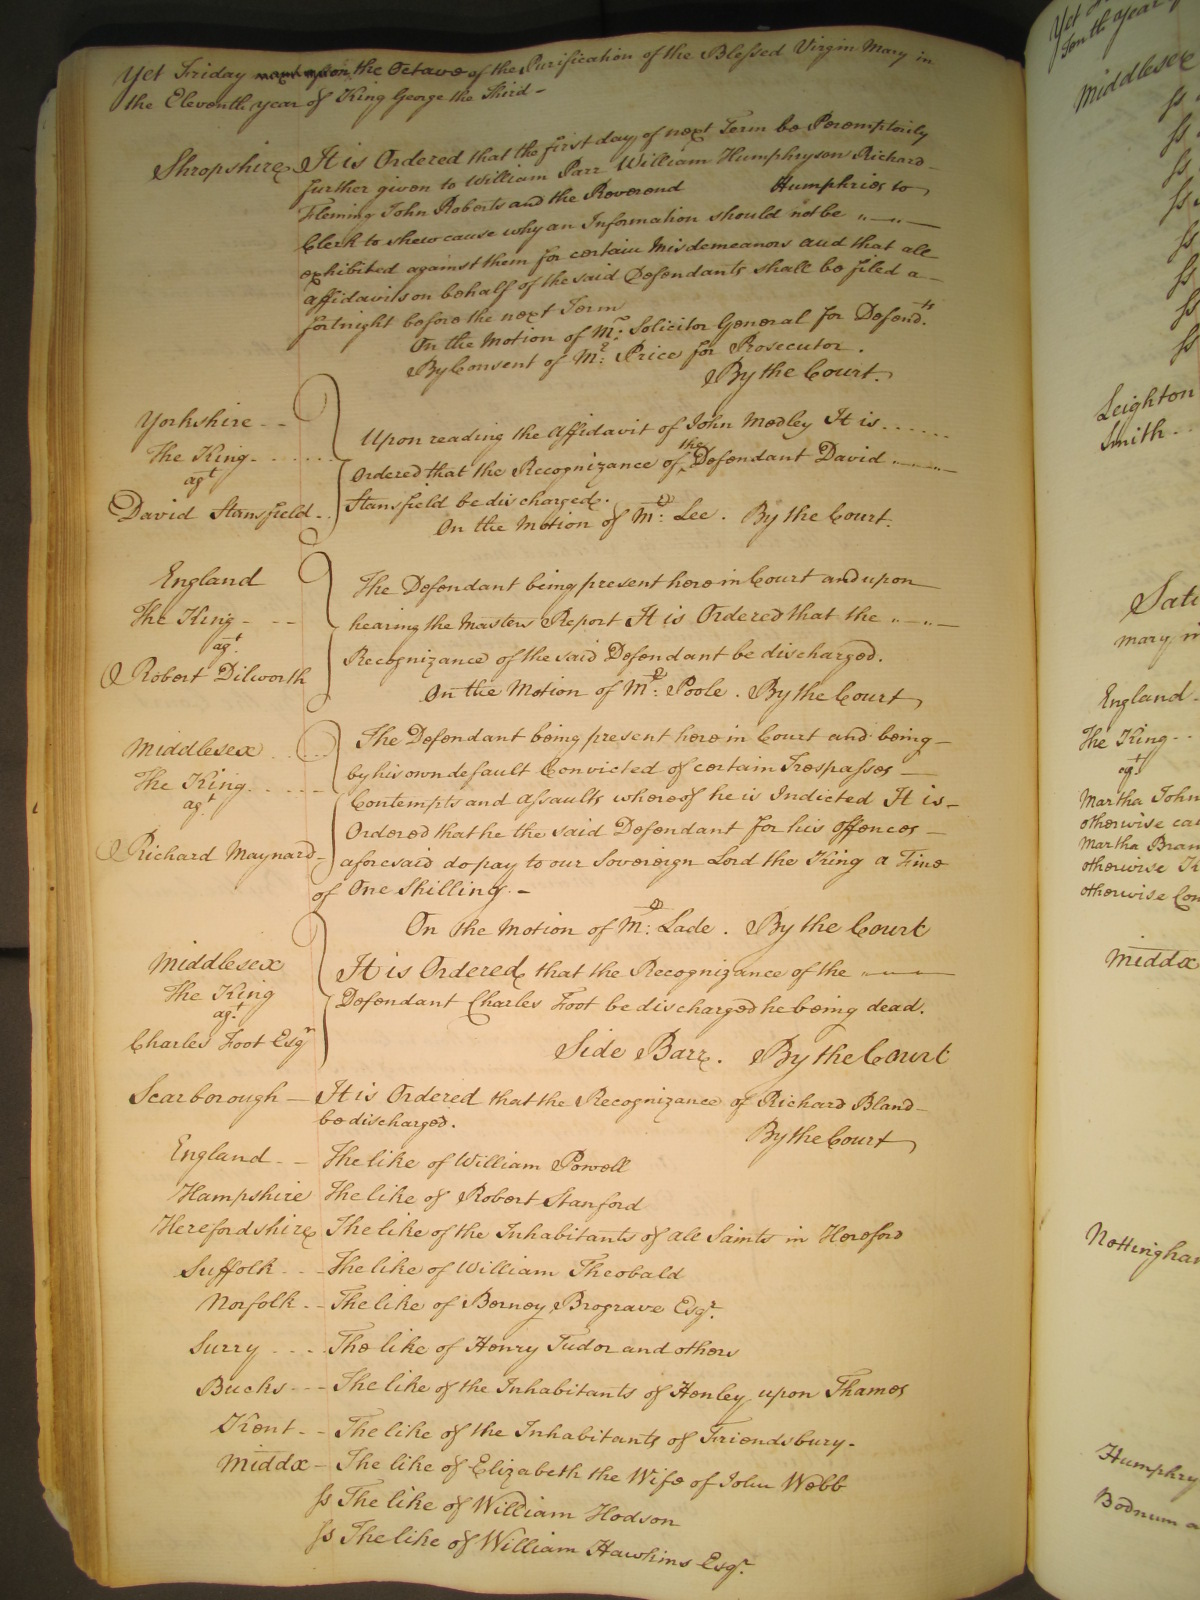 Yet Friday next upon the Octave of the Purification of the Blessed Virgin Mary in
the Eleventh year of King George the Third -
Shropshire It is Ordered that the first day of next Term be Peremptorily
further given to William Parr William Humphryson Richard
Fleming John Roberts and the Reverend Humphries to
Clerk to shew cause why an Information should not be
exhibited against them for certain Misdemeanors and that all
affidavits on behalf of the said Defendants shall be filed a -
fortnight before the next Term
On the Motion of Mr: Solicitor General for Defend.ts
By Consent of Mr: Price for Prosecutor.
By the Court.
Yorkshire - -
The King
agt
David Stansfield
Upon reading the Affidavit of John Medley It is
Ordered that the Recognizance of the Defendant David
Stansfield be discharged.
On the Motion of Mr: Lee. By the Court.
England
The King - - -
agt.
Robert Dilworth
The Defendant being present here in Court and upon
hearing the Masters Report It is Ordered that the
Recognizance of the said Defendant be discharged.
On the Motion of Mr: Poole. By the Court
Middlesex
The King
agt.
Richard Maynard
The Defendant being present here in Court and being -
by his own default Convicted of certain Trespasses
Contempts and assaults whereof he is Indicted It is -
Ordered that he the said Defendant for his offences -
aforesaid do pay to our Sovereign Lord the King a Fine
of One Shilling. -
On the Motion of Mr: Lade. By the Court
Middlesex
The King
agt.
Charles Foot Esqr
It is Ordered that the Recognizance of the
Defendant Charles Foot be discharged he being dead.
Side Barr. By the Court
Scarborough - It is Ordered that the Recognizance of Richard Bland -
be discharged.
By the Court
England - - The like of William Powell
Hampshire The like of Robert Stanford
Herefordshire The like of the Inhabitants of all Saints in Hereford
Suffolk - - - The like of William Theobald
Norfolk - - The like of Berney Brograve Esqr.
Surry - - - - The like of Henry Tudor and others
Bucks - - - The like of the Inhabitants of Henley upon Thames
Kent - - The like of the Inhabitants of Friendsbury -
Middx - The like of Elizabeth the Wife of John Webb
Ss The like of William Hodson
Ss The like of William Hawkins Esqr.
Yet
Tenth year
Middlesex
Ss
Ss
Ss
Ss
Ss
Ss
Ss
Ss
Leighton
Smith
Mary
England -
The King - -
agt
Martha John
otherwise
Martha
otherwise
otherwise
Middx
Humphry
Bodnum